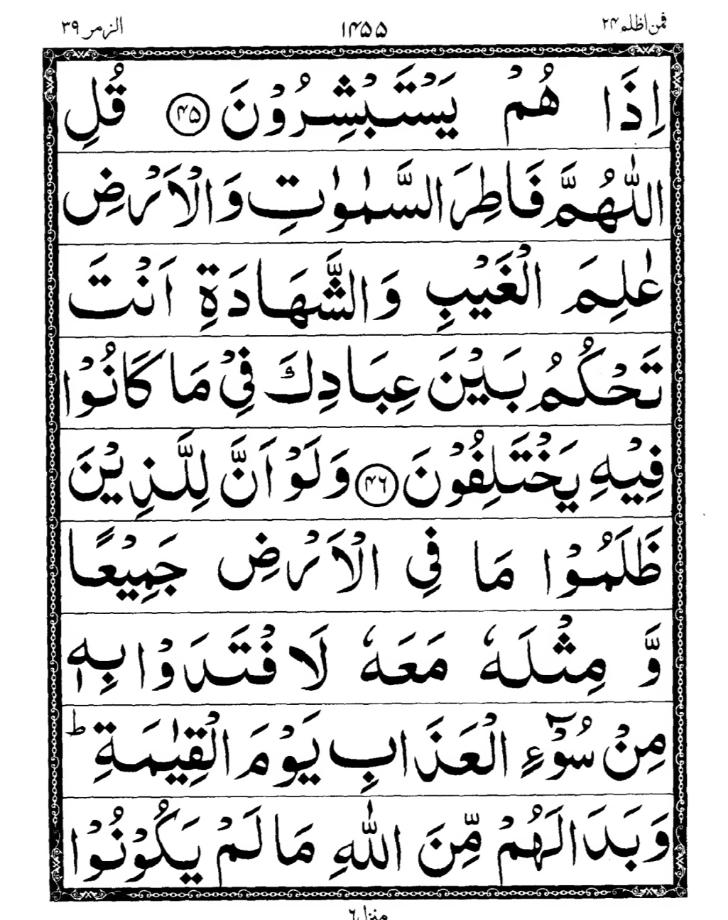 فمن اظلم ٢٤ ١۴۵۵ الزمر ٣٩
اِذَا هُمْ يَسْتَبْشِرُوْنَ ﴿۴۵﴾ قُلِ
اللّٰهُمَّ فَاطِرَ السَّمٰوٰتِ وَالْاَرْضِ
عٰلِمَ الْغَيْبِ وَالشَّهَادَةِ اَنْتَ
تَحْكُمُ بَيْنَ عِبَادِكَ فِيْ مَا كَانُوْا
فِيْهِ يَخْتَلِفُوْنَ ﴿۴۶﴾ وَلَوْ اَنَّ لِلَّذِيْنَ
ظَلَمُوْا مَا فِي الْاَرْضِ جَمِيْعًا
وَّ مِثْلَهٗ مَعَهٗ لَافْتَدَوْا بِهٖ
مِنْ سُوْٓءِ الْعَذَابِ يَوْمَ الْقِيٰمَةِ ؕ
وَبَدَا لَهُمْ مِّنَ اللّٰهِ مَا لَمْ يَكُوْنُوْا
منزل ٦